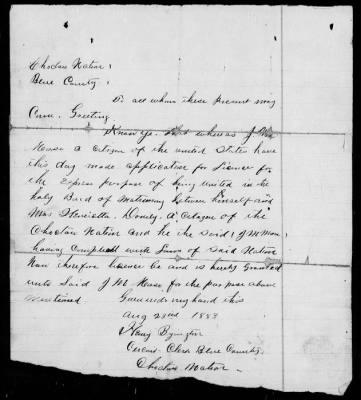 Choctaw Nation
Blue County
To all whom these present may
Come. Greeting
Know ye. that whereas J M
a citizen of the united States have
this day made application for License for
the Express purpose of being united in the
holy Bard of Matrimony between himself and
Mrs Henrietta. A Citizen of the
Choctaw Nation and he the Said J M
having Complied with Laws of Said Nation
Now therefore license be and is hereby Granted
unto Said J M for the purpose above
mentioned Given under my hand this
Aug 22nd 1883
Henry Byington
Circuit Clerk Blue County.
Choctaw Nation